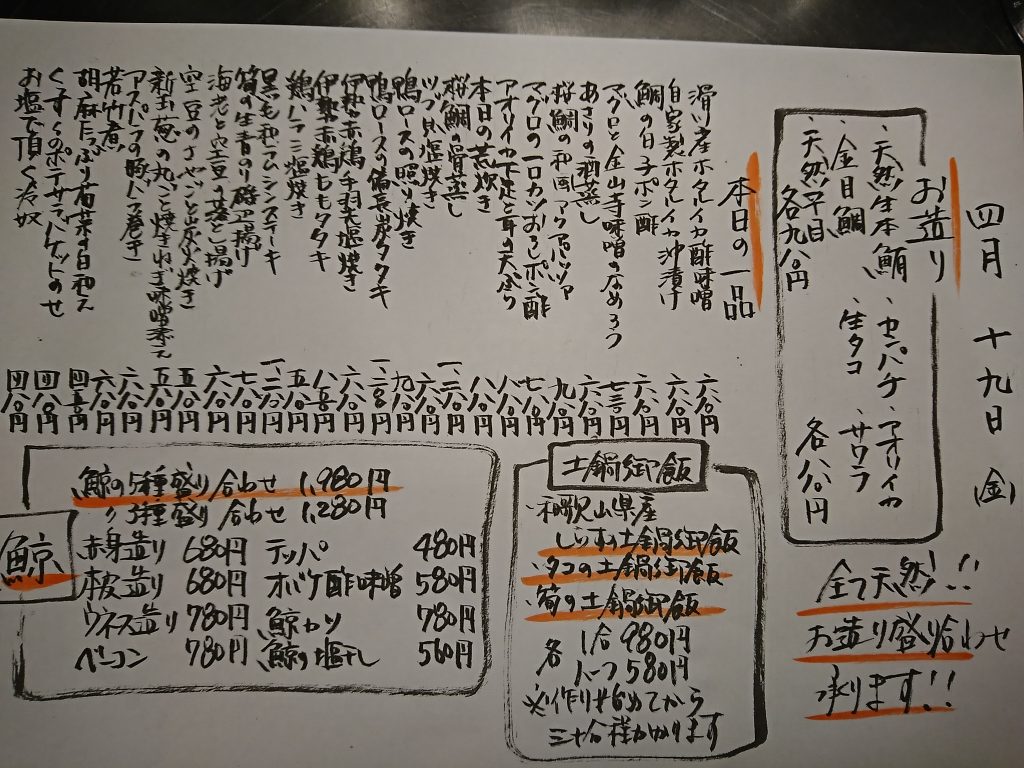 四月 十九日 (金)
お造り
・天然生本鮪 ・カンパチ ・アオリイカ
・金目鯛 ・生タコ ・サワラ
・天然平目
各九八〇円 各八八〇円
全て天然!!
お造り盛り合わせ
承ります!!
本日の一品
滑川産ホタルイカ酢味噌 六八〇円
自家製ホタルイカ沖漬け 六八〇円
鯛の白子ポン酢 六八〇円
マグロと金山寺味噌のなめろう 七三〇円
あさりの酒蒸し 六八〇円
桜鯛の和風アクアパッツァ 九八〇円
マグロの一口カツおろしポン酢 七八〇円
アオリイカ下足と耳の天ぷら 八八〇円
本日の荒炊き 八八〇円
桜鯛の骨蒸し
ツブ貝塩焼き 六八〇円
鴨ロースの照り焼き 九八〇円
鴨ロースの備長炭タタキ
伊勢赤鶏 手羽塩焼き 六八〇円
伊勢赤鶏ももタタキ
鶏ハラミ塩焼き 五八〇円
黒毛和牛ランプステーキ
筍の生青のり磯辺揚げ 七八〇円
海老と空豆の 揚げ 六八〇円
空豆のさやごと炭火焼き 五八〇円
新玉葱の丸ごと焼きねぎ味噌添え 五八〇円
アスパラの豚バラ巻き 六八〇円
若竹煮 六八〇円
胡麻たっぷり菊菜の白和え 四五〇円
ポテサラバゲットのせ 四八〇円
お塩で頂く冷奴 四八〇円
土鍋御飯
・和歌山県産
しらすの土鍋御飯
・タコの土鍋御飯
・筍の土鍋御飯
各 1合 980円
ハーフ 580円
※作り始めてから
三十分程かかります
鯨
鯨の5種盛り合わせ 1,980円
〃 3種盛り合わせ 1,280円
赤身造り 680円 テッパ 480円
本皮造り 680円 オバケ酢味噌 580円
ウネス造り 780円 鯨カツ 780円
ベーコン 780円 鯨の塩干し 560円